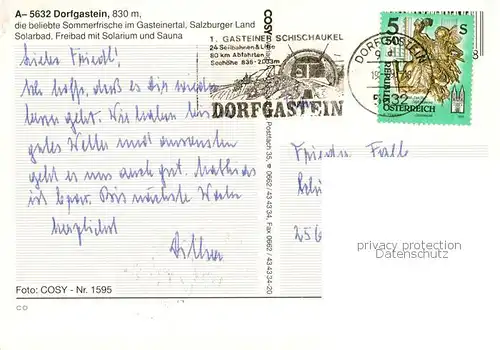 A– 5632 Dorfgastein, 830 m,
die beliebte Sommerfrische im Gasteinertal, Salzburger Land
Solarbad, Freibad mit Solarium und Sauna
1. GASTEINER SCHISCHAUKEL
24 Seilbahnen & Lifte
80 km Abfahrten
Seehöhe 836-2033m
DORFGASTEIN
DORFGASTEIN
5
S
REPUBLIK
ÖSTERREICH
Ich hoffe, daß es Dir wieder
geht. Wir haben
gutes Wetter und ansonsten
geht es uns auch gut.
ist Bis nächste Woche
herzlichst
COSY
Postfach 35, 0662/43 43 34, Fax 0662/43 43 34-20
256
privacy protection
Datenschutz
Foto: COSY - Nr. 1595
CO